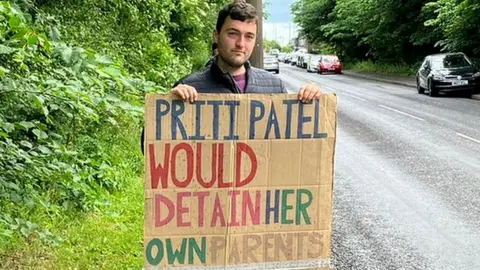 PRITI PATEL
WOULD
DETAIN HER
OWN PARENTS